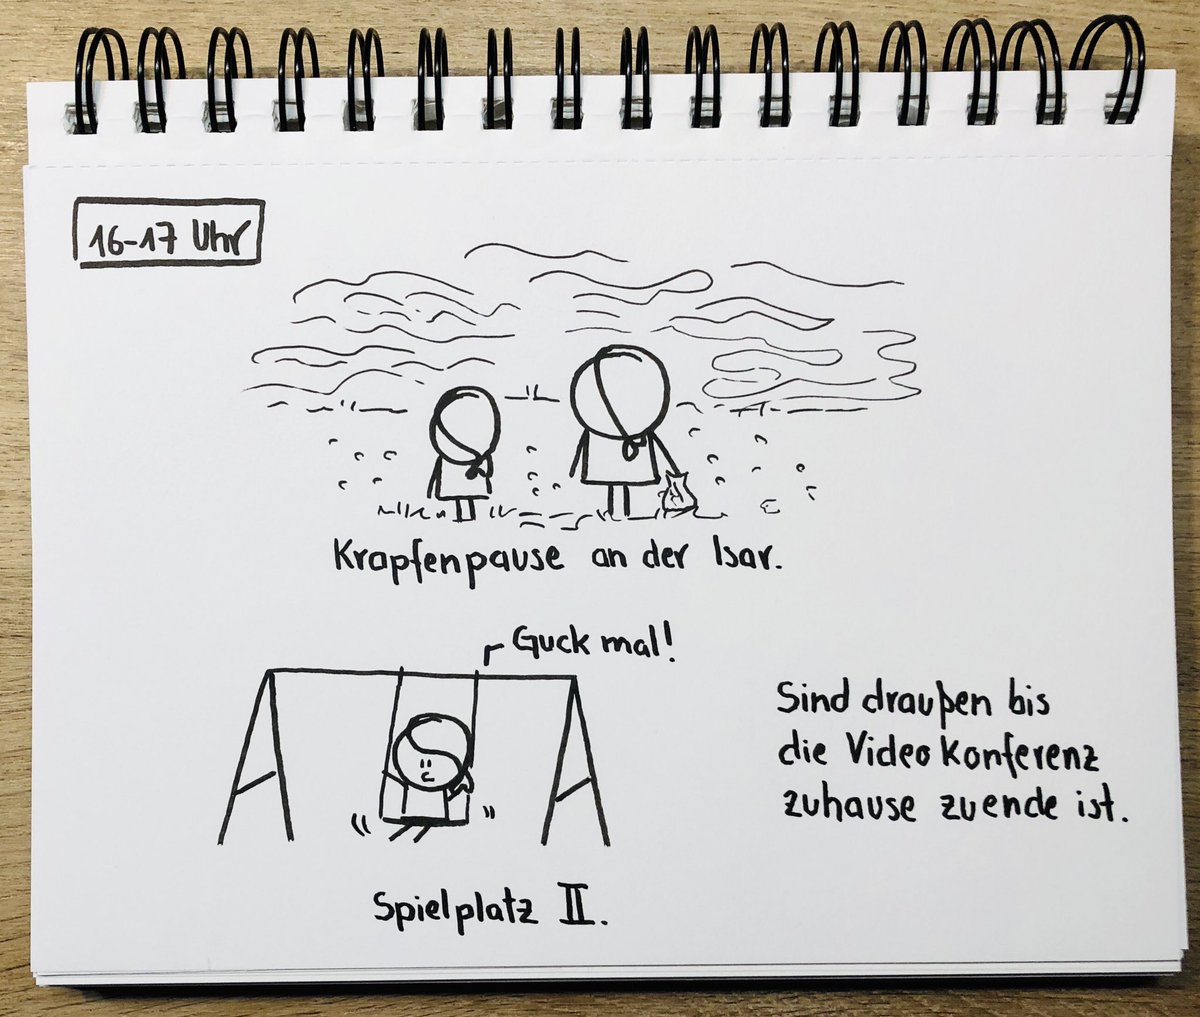 16-17 Uhr
Krapfenpause an der Isar.
Guck mal!
Sind draußen bis
die Videokonferenz
zuhause zuende ist.
Spielplatz II.